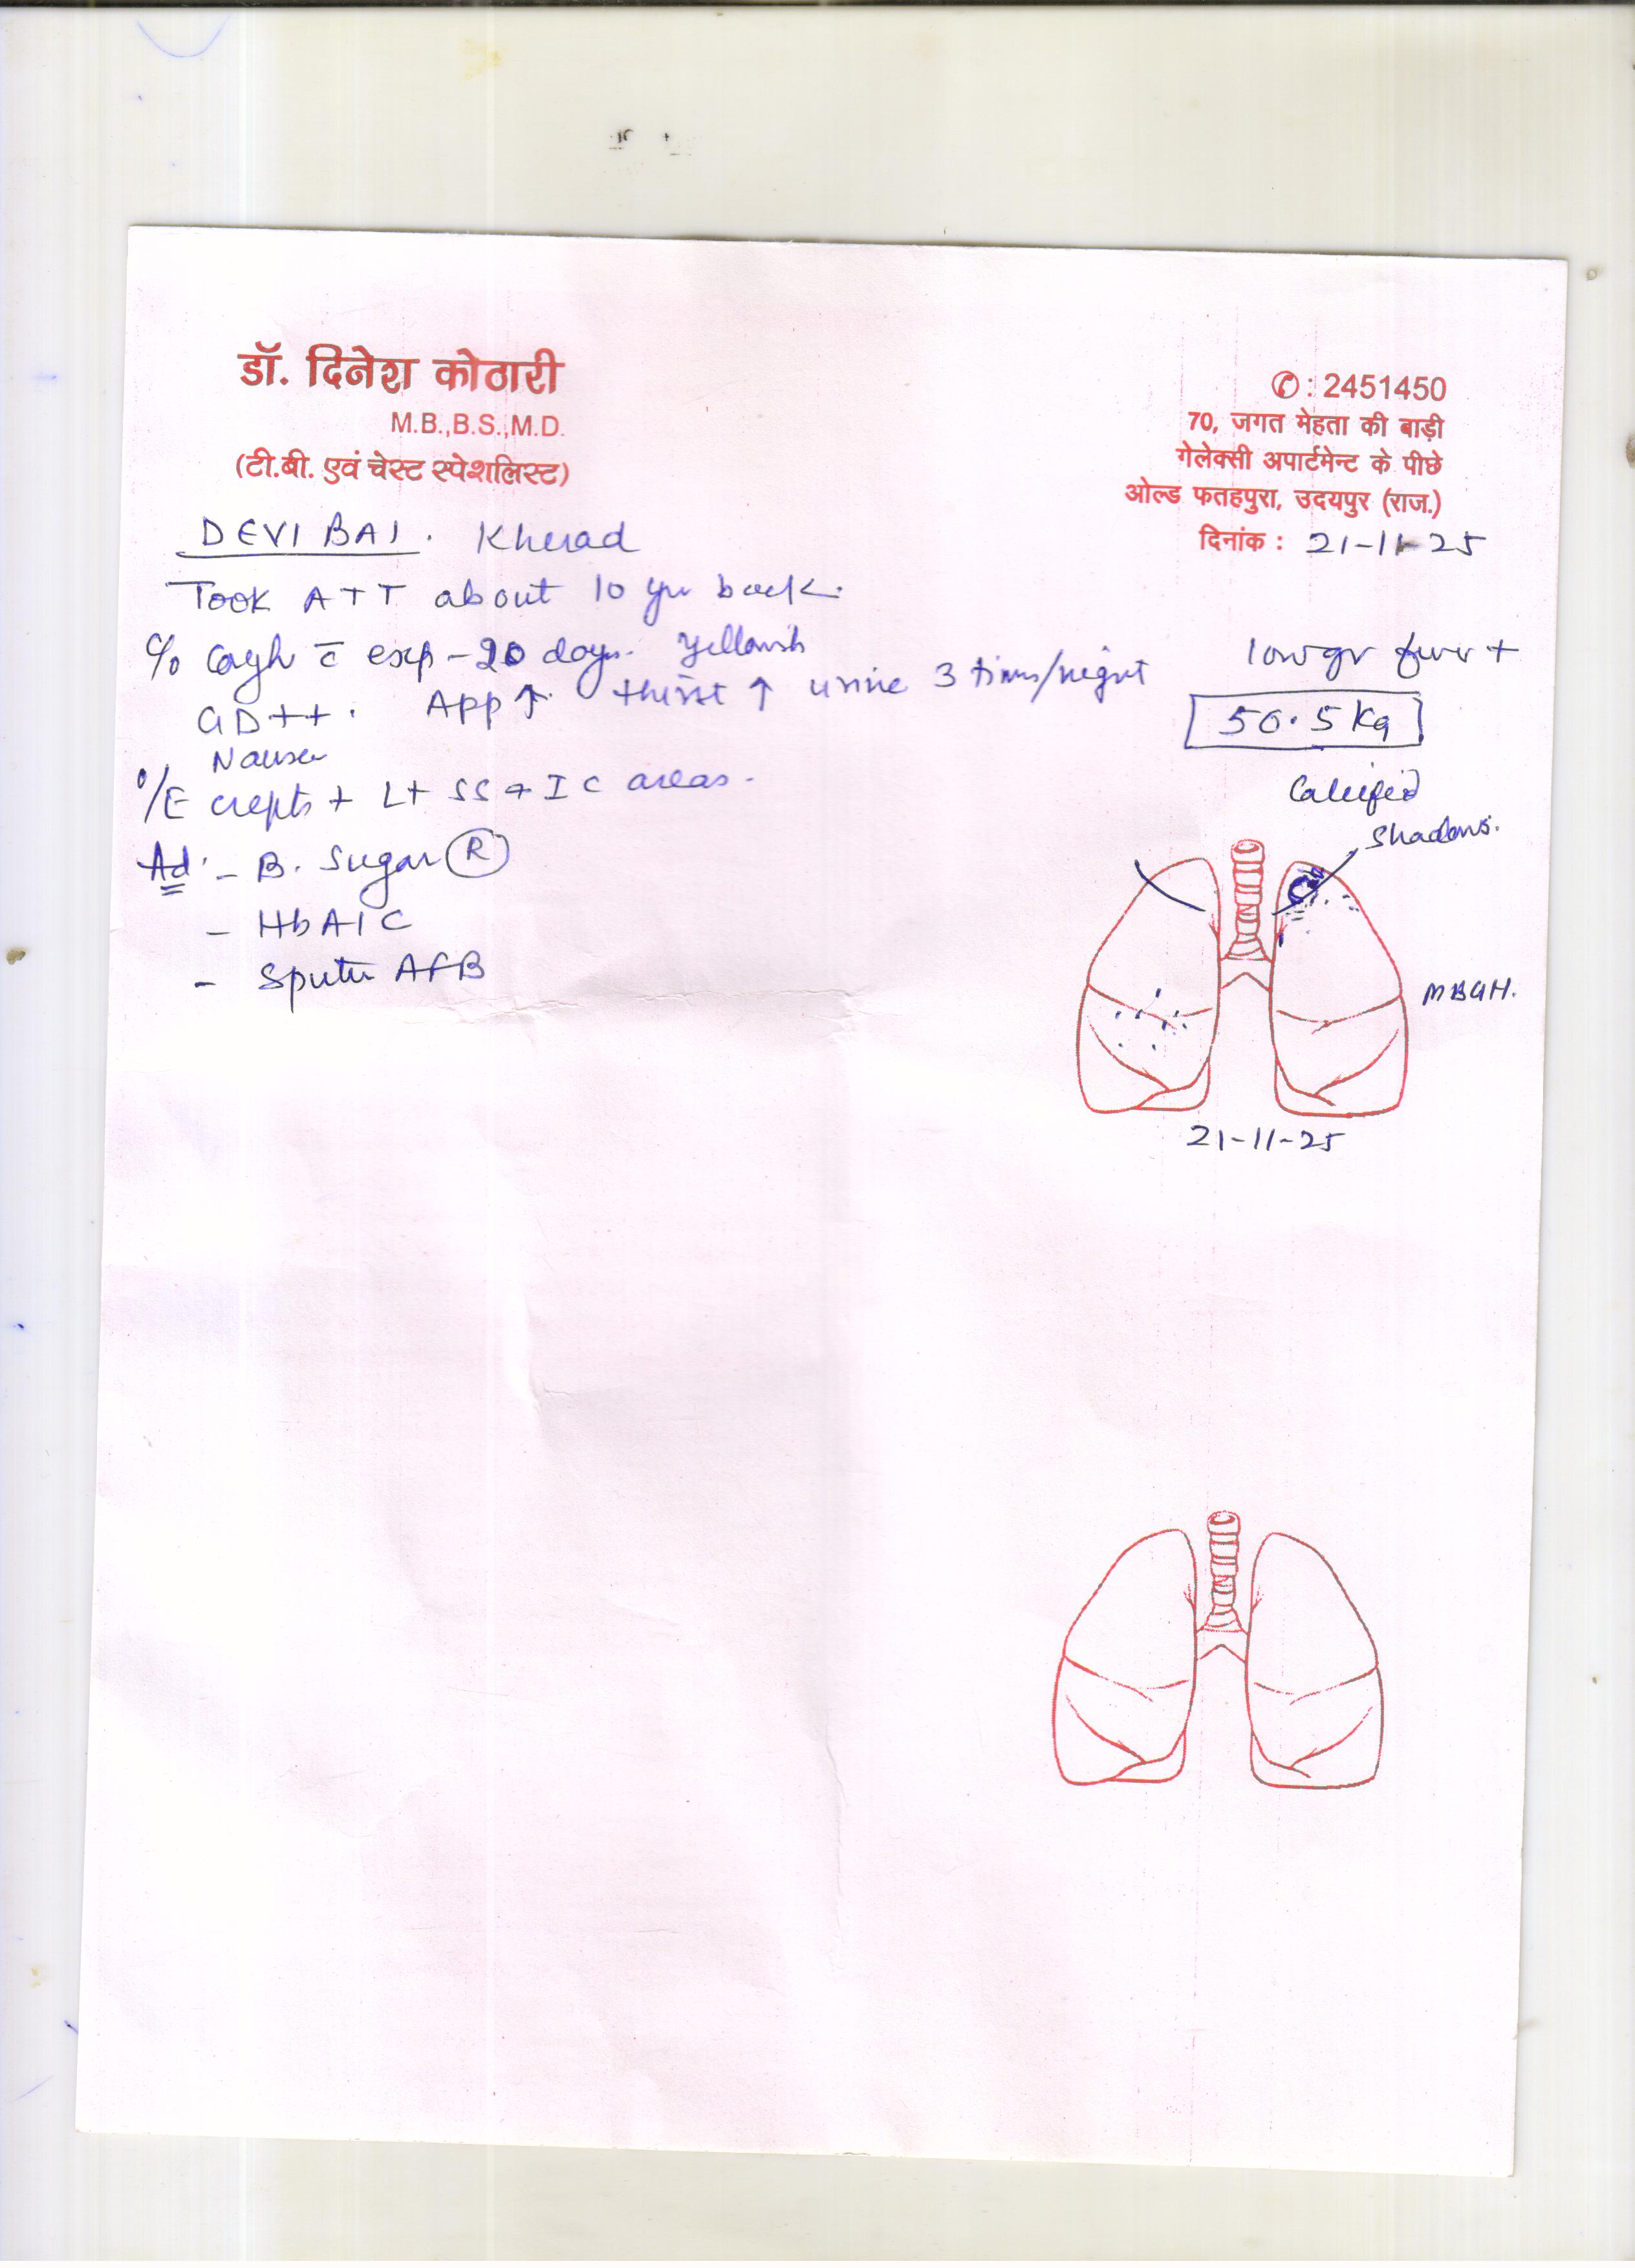 डॉ. दिनेश कोठारी
M.B.,B.S.,M.D.
(टी.बी. एवं चेस्ट स्पेशलिस्ट)
✆ : 2451450
70, जगत मेहता की बाड़ी
गेलेक्सी अपार्टमेन्ट के पीछे
ओल्ड फतहपुरा, उदयपुर (राज.)
दिनांक : 21-11-25
DEVI BAI. Kherad
Took ATT about 10 yr back.
c/o cough c̄ exp - 20 days. Yellowish
low gr fever +
GD++. App ↑. thirst ↑ urine 3 times/night
50.5 kg
Nausea
O/E crepts + Lt SS + IC areas.
Calcified
shadows.
Ad. - B. Sugar (R)
- HbA1C
- Sputu AFB
MBGH.
21-11-25